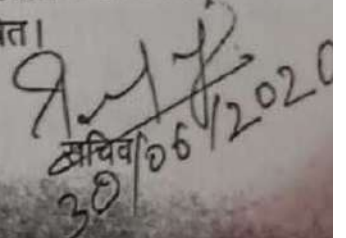 त।
सचिव
30/06/2020